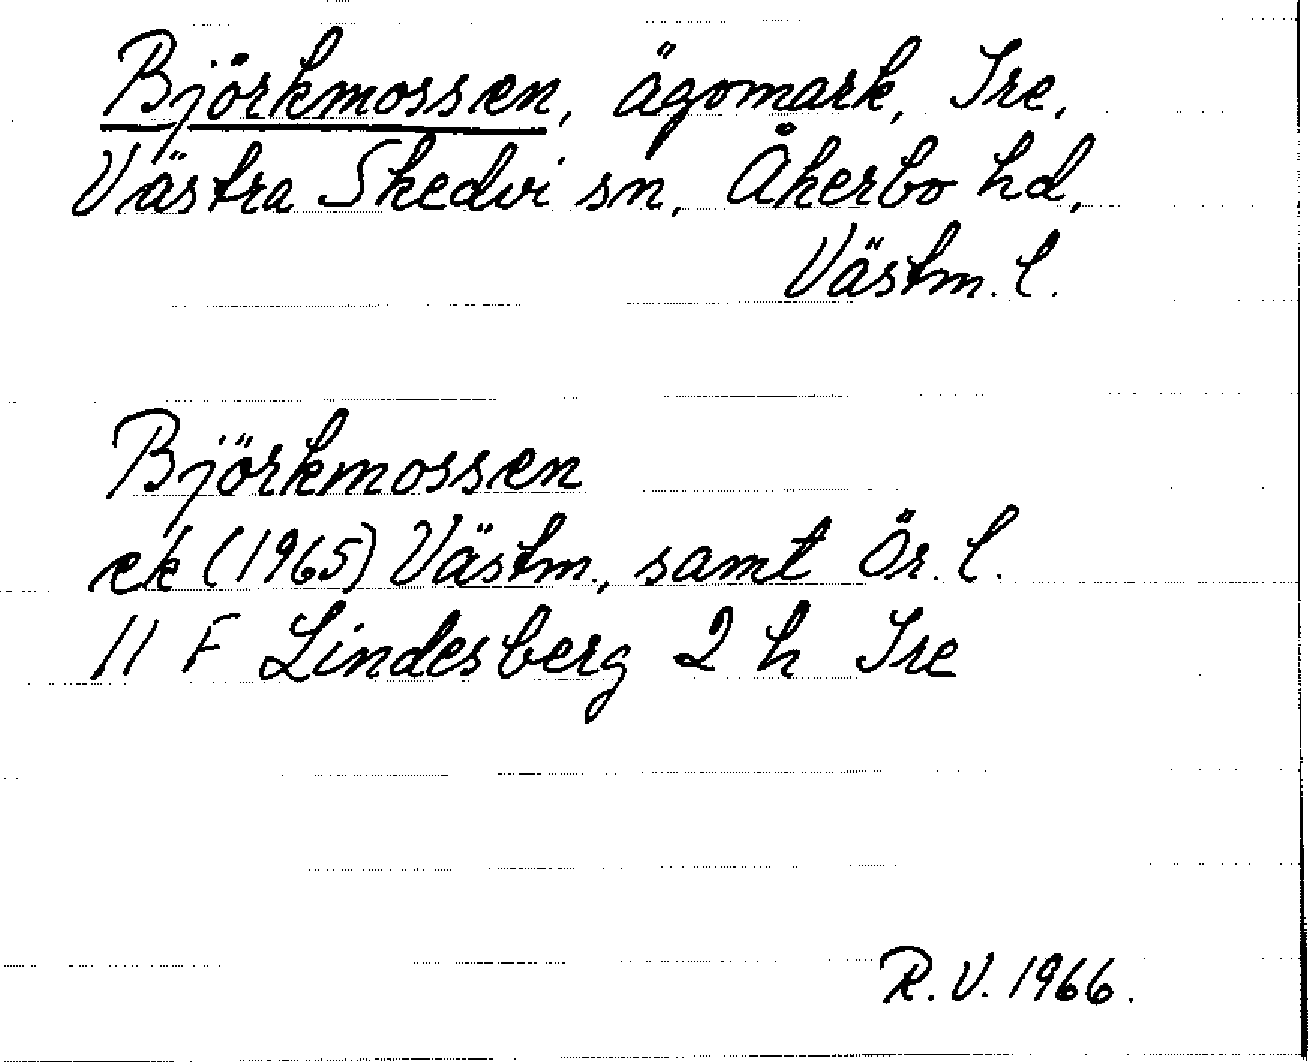 Björkmossen, ägomark, Tre,
Västra Skedvi sn, Åkerbo hd,
Västm. l.
Björkmossen
ek (1965) Västm., samt Ör. l.
11 F Lindesberg 2 h Tre
R.V. 1966.